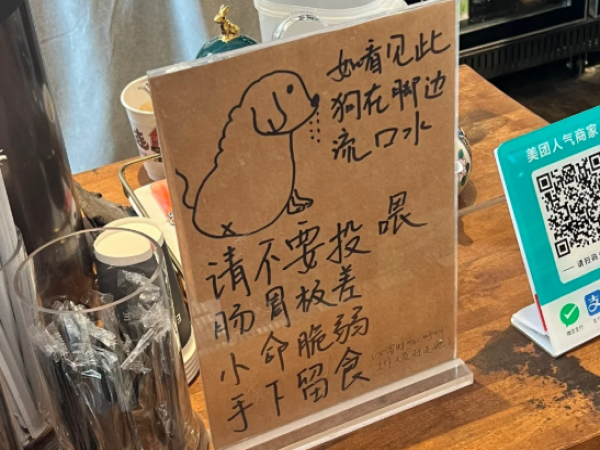 如看见此
狗在脚边
流口水
请不要投喂
肠胃极差
小命脆弱
手下留食
美团人气商家